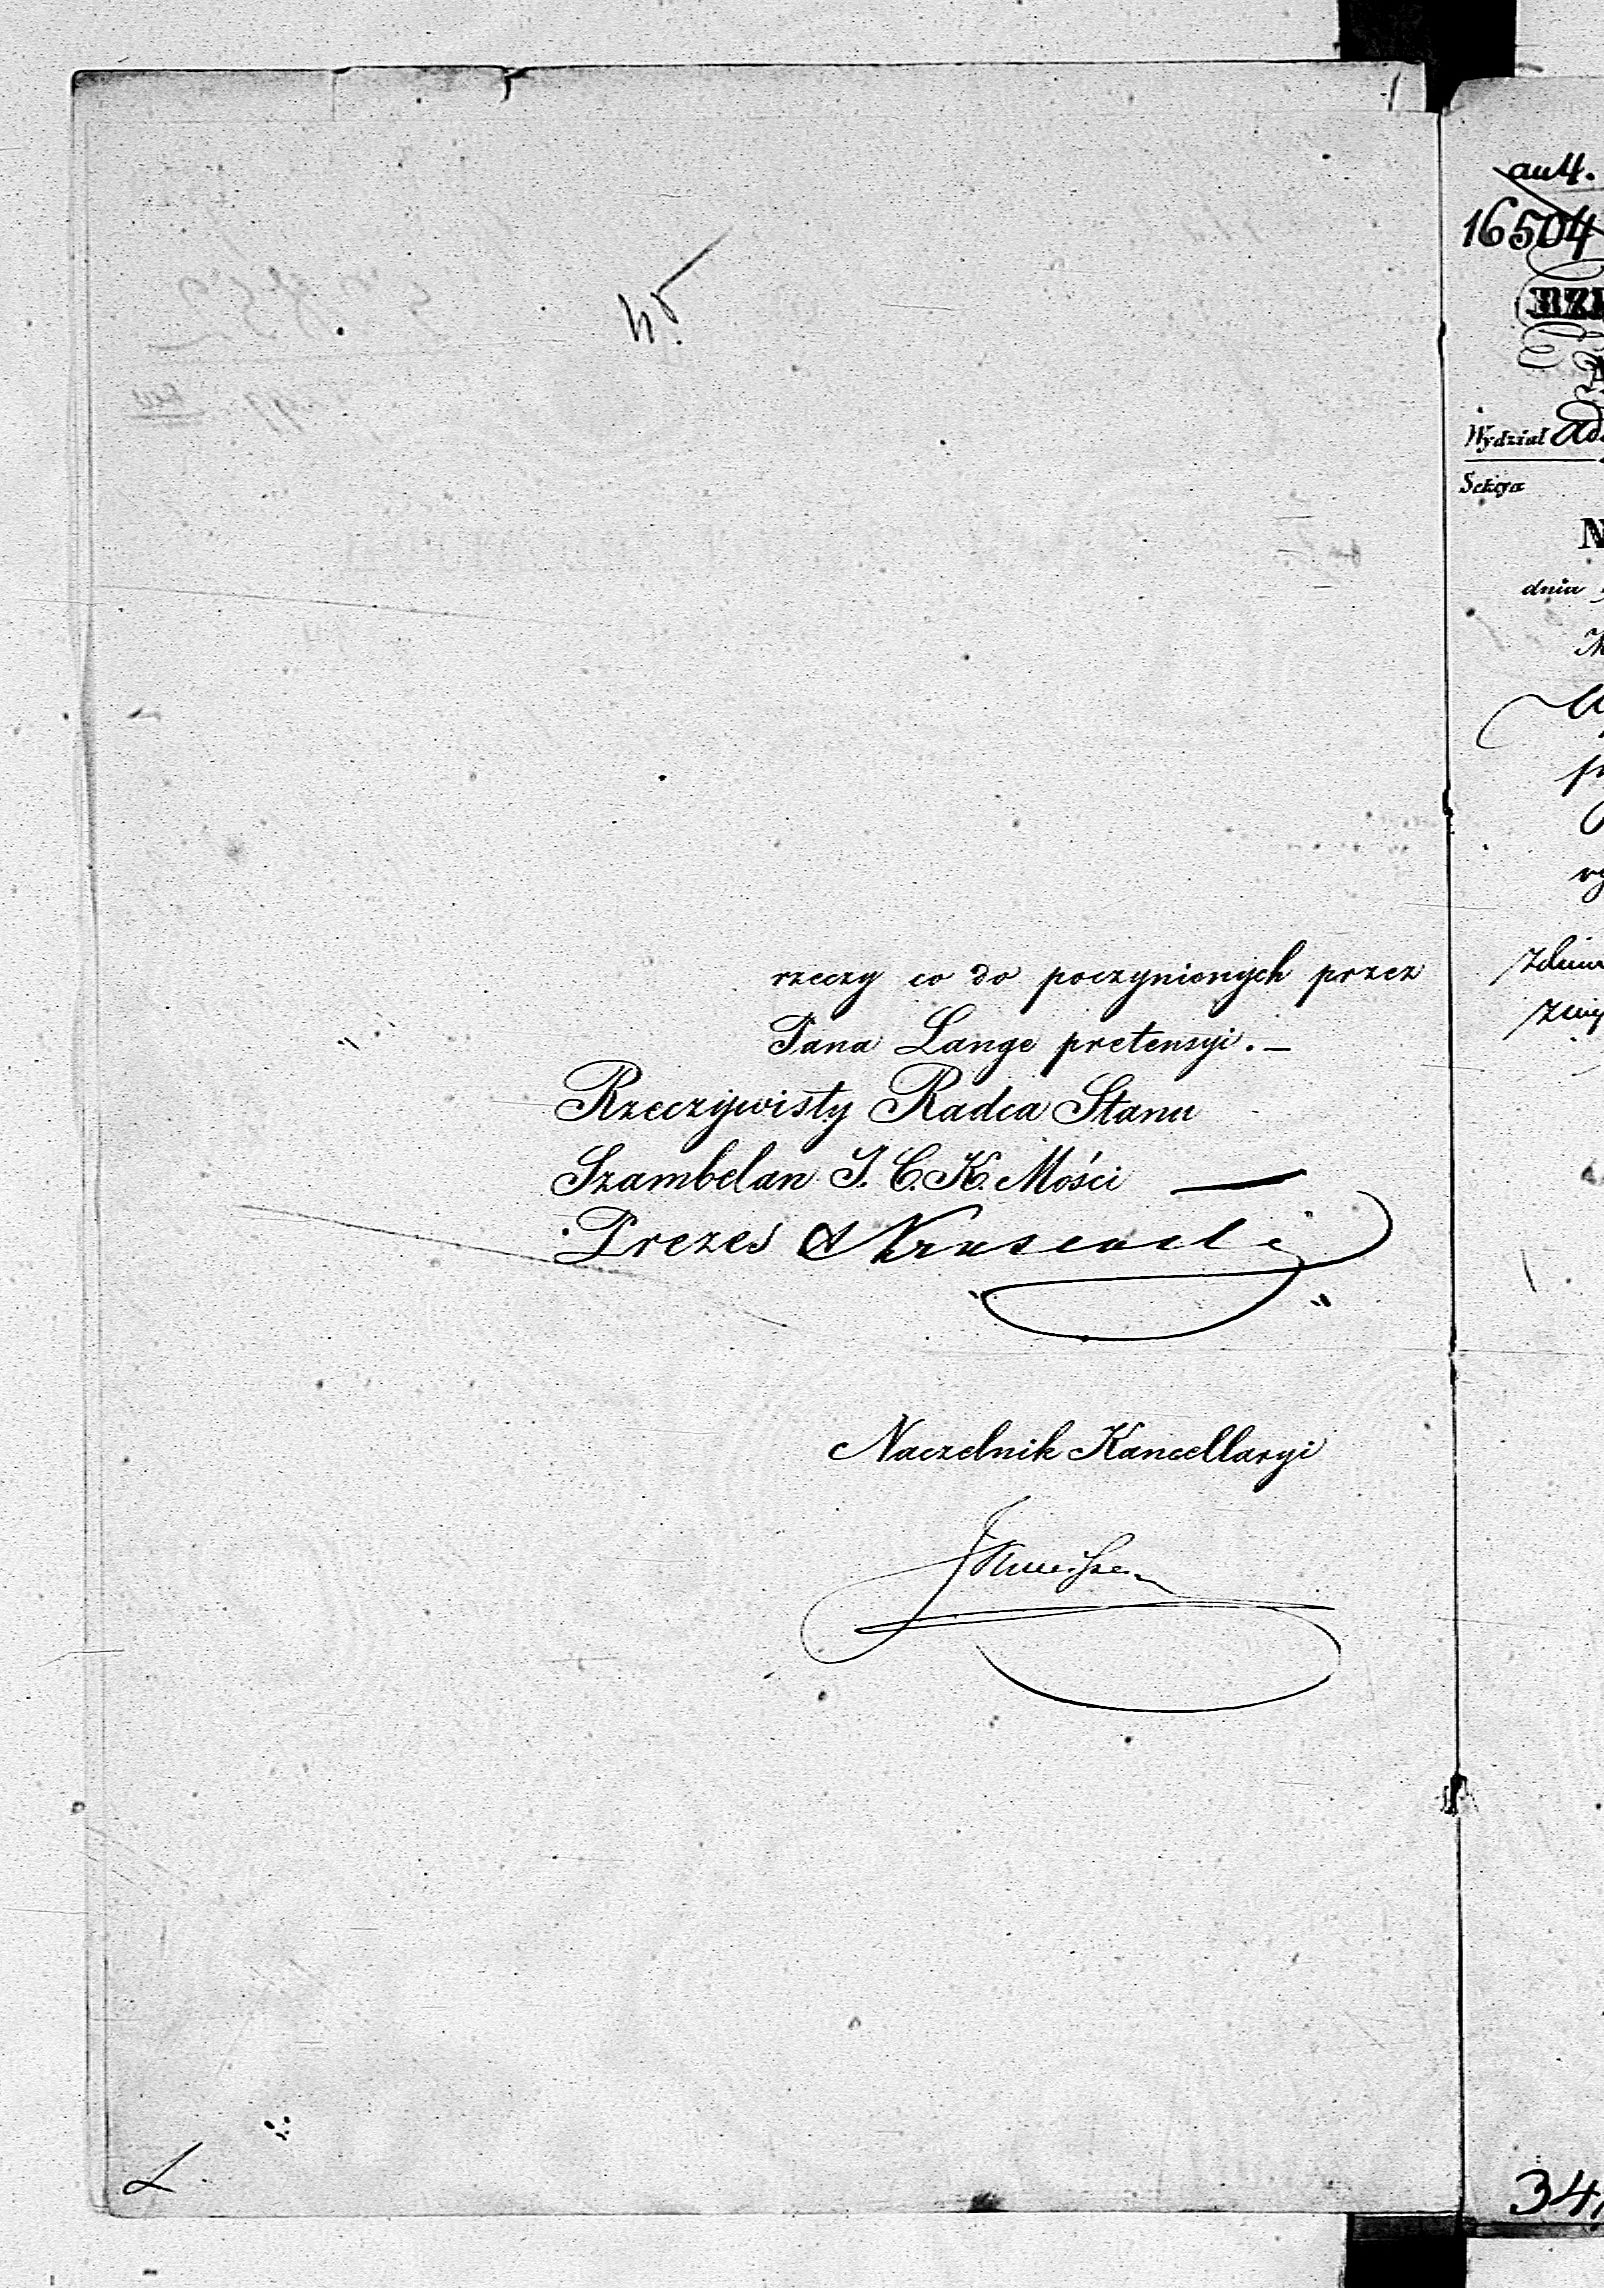 rzeczy co do poczynionych przez
Pana Lange pretensyi. —
Rzeczywisty Radca Stanu
Szambelan J. C. K. Mości
Prezes
Naczelnik Kancellaryi
16504
Wydział
Sekcya
N
dnia
34